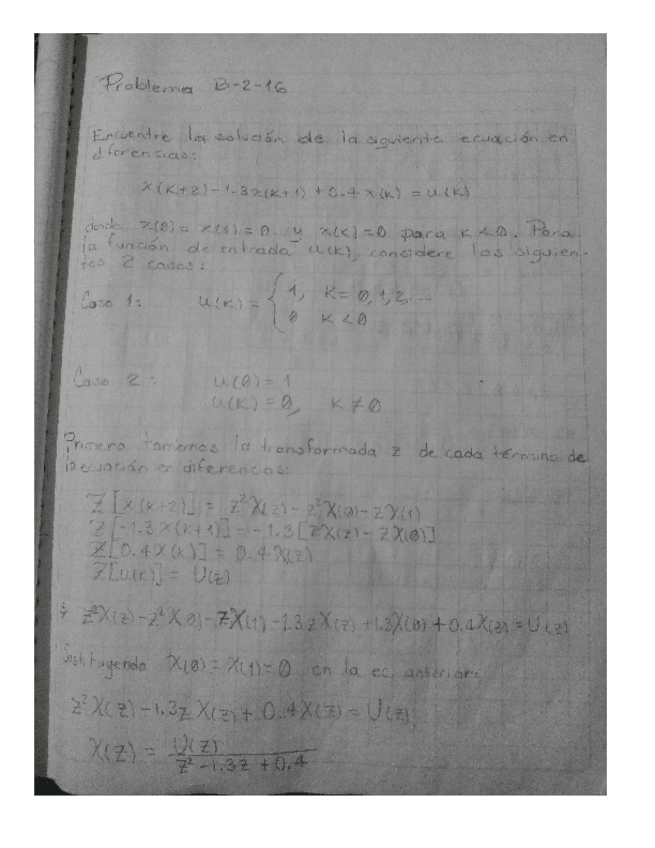 Problema B-2-16
Encuentre la solución de la siguiente ecuación en
diferencias:
x(k+2)-1.3x(k+1)+0.4x(k)=u(k)
donde x(0)=x(1)=0 y x(k)=0 para k<0. Para
la función de entrada u(k), considere los siguien-
tes 2 casos:
Caso 1: u(k)={1, k=0,1,2...
0 k<0
Caso 2: u(0)=1
u(k)=0, k≠0
Primero tomemos la transformada z de cada término de
la ecuación en diferencias:
Z[x(k+2)]=z²X(z)-z²X(0)-zX(1)
Z[-1.3x(k+1)]=-1.3[zX(z)-zX(0)]
Z[0.4x(k)]=0.4X(z)
Z[u(k)]=U(z)
z²X(z)-z²X(0)-zX(1)-1.3zX(z)+1.3X(0)+0.4X(z)=U(z)
Sustituyendo X(0)=X(1)=0 en la ec. anterior:
z²X(z)-1.3zX(z)+0.4X(z)=U(z)
X(z)=U(z)
z²-1.3z+0.4